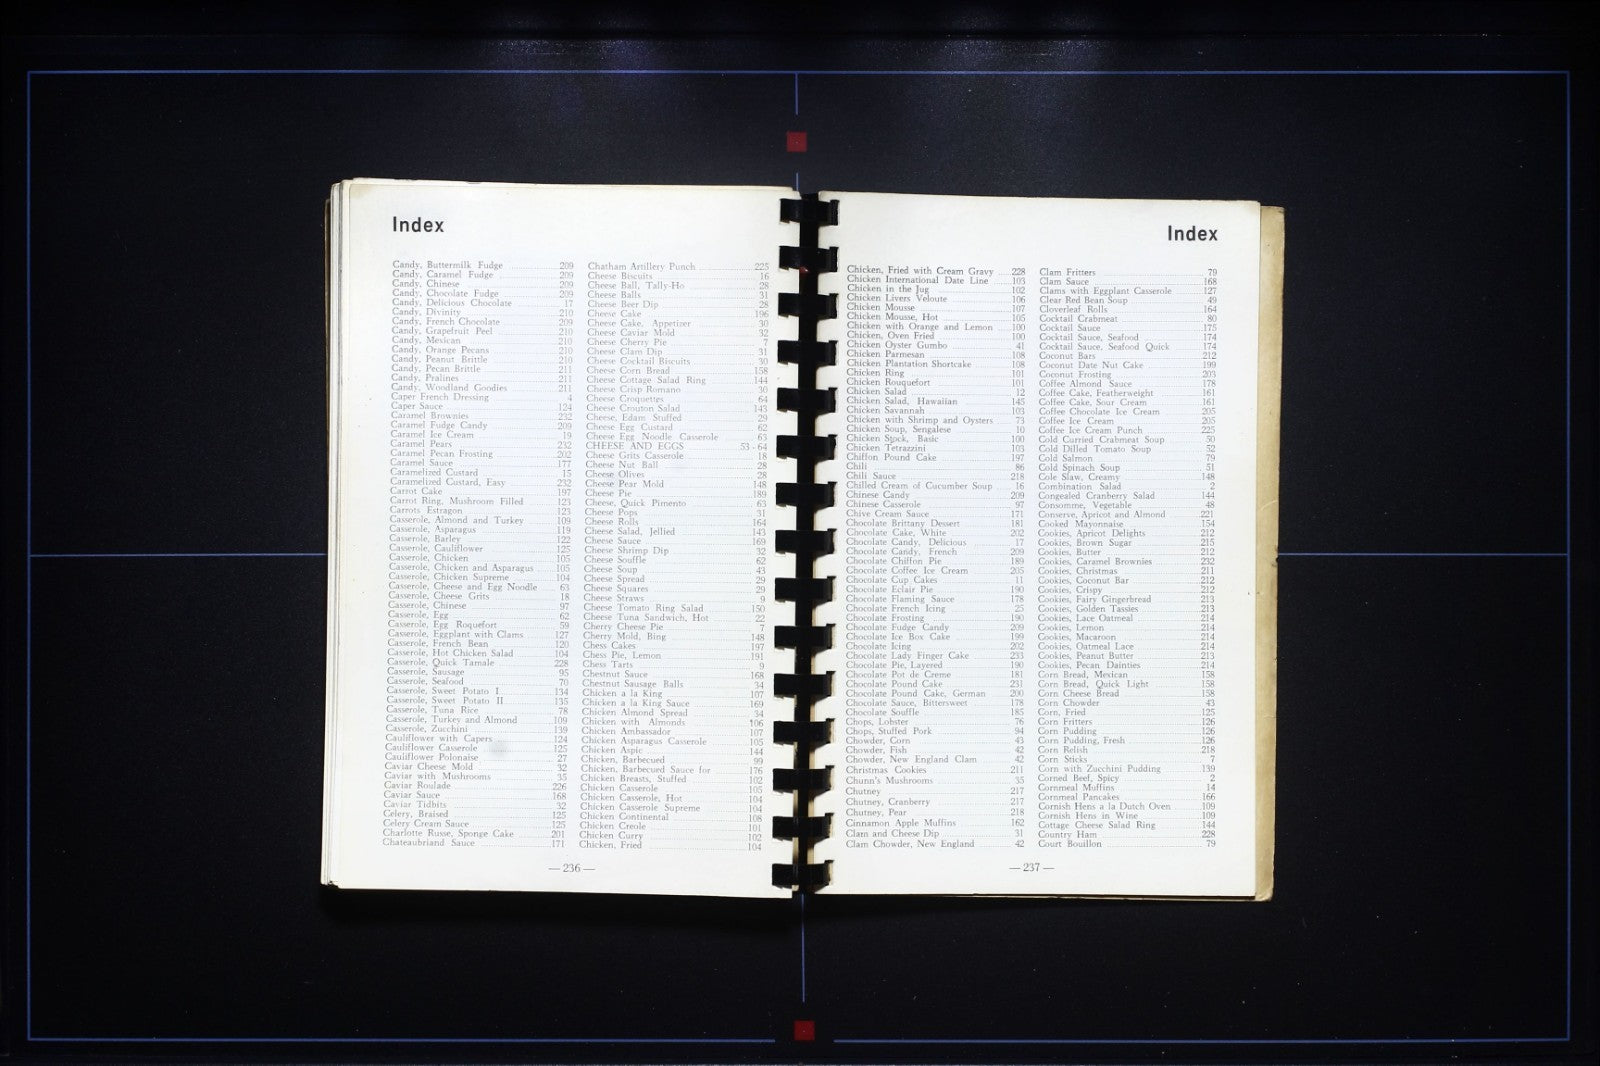 Index
Candy, Buttermilk Fudge 209
Candy, Caramel Fudge 209
Candy, Chinese 209
Candy, Chocolate Fudge 209
Candy, Delicious Chocolate 17
Candy, Divinity 210
Candy, French Chocolate 209
Candy, Grapefruit Peel 210
Candy, Mexican 210
Candy, Orange Pecans 210
Candy, Peanut Brittle 210
Candy, Pecan Brittle 211
Candy, Pralines 211
Candy, Woodland Goodies 211
Caper French Dressing 4
Caper Sauce 124
Caramel Brownies 232
Caramel Fudge Candy 209
Caramel Ice Cream 19
Caramel Pears 232
Caramel Pecan Frosting 202
Caramel Sauce 177
Caramelized Custard 15
Caramelized Custard, Easy 232
Carrot Cake 197
Carrot Ring, Mushroom Filled 123
Carrots Estragon 123
Casserole, Almond and Turkey 109
Casserole, Asparagus 119
Casserole, Barley 122
Casserole, Cauliflower 125
Casserole, Chicken 105
Casserole, Chicken and Asparagus 105
Casserole, Chicken Supreme 104
Casserole, Cheese and Egg Noodle 63
Casserole, Cheese Grits 18
Casserole, Chinese 97
Casserole, Egg 62
Casserole, Egg Roquefort 59
Casserole, Eggplant with Clams 127
Casserole, French Bean 120
Casserole, Hot Chicken Salad 104
Casserole, Quick Tamale 228
Casserole, Sausage 95
Casserole, Seafood 70
Casserole, Sweet Potato I 134
Casserole, Sweet Potato II 135
Casserole, Tuna Rice 78
Casserole, Turkey and Almond 109
Casserole, Zucchini 139
Cauliflower with Capers 124
Cauliflower Casserole 125
Cauliflower Polonaise 27
Caviar Cheese Mold 32
Caviar with Mushrooms 35
Caviar Roulade 226
Caviar Sauce 168
Caviar Tidbits 32
Celery, Braised 125
Celery Cream Sauce 125
Charlotte Russe, Sponge Cake 201
Chateaubriand Sauce 171
Chatham Artillery Punch 225
Cheese Biscuits 16
Cheese Ball, Tally-Ho 28
Cheese Balls 31
Cheese Beer Dip 28
Cheese Cake 196
Cheese Cake, Appetizer 30
Cheese Caviar Mold 32
Cheese Cherry Pie 7
Cheese Clam Dip 31
Cheese Cocktail Biscuits 30
Cheese Corn Bread 158
Cheese Cottage Salad Ring 144
Cheese Crisp Romano 30
Cheese Croquettes 64
Cheese Crouton Salad 143
Cheese, Edam Stuffed 29
Cheese Egg Custard 62
Cheese Egg Noodle Casserole 63
CHEESE AND EGGS 53 - 64
Cheese Grits Casserole 18
Cheese Nut Ball 28
Cheese Olives 28
Cheese Pear Mold 148
Cheese Pie 189
Cheese, Quick Pimento 63
Cheese Pops 31
Cheese Rolls 164
Cheese Salad, Jellied 143
Cheese Sauce 169
Cheese Shrimp Dip 32
Cheese Souffle 62
Cheese Soup 43
Cheese Spread 29
Cheese Squares 29
Cheese Straws 9
Cheese Tomato Ring Salad 150
Cheese Tuna Sandwich, Hot 22
Cherry Cheese Pie 7
Cherry Mold, Bing 148
Chess Cakes 197
Chess Pie, Lemon 191
Chess Tarts 9
Chestnut Sauce 168
Chestnut Sausage Balls 34
Chicken a la King 107
Chicken a la King Sauce 169
Chicken Almond Spread 34
Chicken with Almonds 106
Chicken Ambassador 107
Chicken Asparagus Casserole 105
Chicken Aspic 144
Chicken, Barbecued 99
Chicken, Barbecued Sauce for 176
Chicken Breasts, Stuffed 102
Chicken Casserole 105
Chicken Casserole, Hot 104
Chicken Casserole Supreme 104
Chicken Continental 108
Chicken Creole 101
Chicken Curry 102
Chicken, Fried 104
— 236 —
Index
Chicken, Fried with Cream Gravy 228
Chicken International Date Line 103
Chicken in the Jug 102
Chicken Livers Veloute 106
Chicken Mousse 107
Chicken Mousse, Hot 105
Chicken with Orange and Lemon 100
Chicken, Oven Fried 100
Chicken Oyster Gumbo 41
Chicken Parmesan 108
Chicken Plantation Shortcake 108
Chicken Ring 101
Chicken Rouquefort 101
Chicken Salad 12
Chicken Salad, Hawaiian 145
Chicken Savannah 103
Chicken with Shrimp and Oysters 73
Chicken Soup, Sengalese 10
Chicken Stock, Basic 100
Chicken Tetrazzini 103
Chiffon Pound Cake 197
Chili 86
Chili Sauce 218
Chilled Cream of Cucumber Soup 16
Chinese Candy 209
Chinese Casserole 97
Chive Cream Sauce 171
Chocolate Brittany Dessert 181
Chocolate Cake, White 202
Chocolate Candy, Delicious 17
Chocolate Candy, French 209
Chocolate Chiffon Pie 189
Chocolate Coffee Ice Cream 205
Chocolate Cup Cakes 11
Chocolate Eclair Pie 190
Chocolate Flaming Sauce 178
Chocolate French Icing 25
Chocolate Frosting 190
Chocolate Fudge Candy 209
Chocolate Ice Box Cake 199
Chocolate Icing 202
Chocolate Lady Finger Cake 233
Chocolate Pie, Layered 190
Chocolate Pot de Creme 181
Chocolate Pound Cake 231
Chocolate Pound Cake, German 200
Chocolate Sauce, Bittersweet 178
Chocolate Souffle 185
Chops, Lobster 76
Chops, Stuffed Pork 94
Chowder, Corn 43
Chowder, Fish 42
Chowder, New England Clam 42
Christmas Cookies 211
Chunn's Mushrooms 35
Chutney 217
Chutney, Cranberry 217
Chutney, Pear 218
Cinnamon Apple Muffins 162
Clam and Cheese Dip 31
Clam Chowder, New England 42
Clam Fritters 79
Clam Sauce 168
Clams with Eggplant Casserole 127
Clear Red Bean Soup 49
Cloverleaf Rolls 164
Cocktail Crabmeat 80
Cocktail Sauce 175
Cocktail Sauce, Seafood 174
Cocktail Sauce, Seafood Quick 174
Coconut Bars 212
Coconut Date Nut Cake 199
Coconut Frosting 203
Coffee Almond Sauce 178
Coffee Cake, Featherweight 161
Coffee Cake, Sour Cream 161
Coffee Chocolate Ice Cream 205
Coffee Ice Cream 205
Coffee Ice Cream Punch 225
Cold Curried Crabmeat Soup 50
Cold Dilled Tomato Soup 52
Cold Salmon 79
Cold Spinach Soup 51
Cole Slaw, Creamy 148
Combination Salad 2
Congealed Cranberry Salad 144
Consomme, Vegetable 48
Conserve, Apricot and Almond 221
Cooked Mayonnaise 154
Cookies, Apricot Delights 212
Cookies, Brown Sugar 215
Cookies, Butter 212
Cookies, Caramel Brownies 232
Cookies, Christmas 211
Cookies, Coconut Bar 212
Cookies, Crispy 212
Cookies, Fairy Gingerbread 213
Cookies, Golden Tassies 213
Cookies, Lace Oatmeal 214
Cookies, Lemon 214
Cookies, Macaroon 214
Cookies, Oatmeal Lace 214
Cookies, Peanut Butter 213
Cookies, Pecan Dainties 214
Corn Bread, Mexican 158
Corn Bread, Quick Light 158
Corn Cheese Bread 158
Corn Chowder 43
Corn, Fried 125
Corn Fritters 126
Corn Pudding 126
Corn Pudding, Fresh 126
Corn Relish 218
Corn Sticks 7
Corn with Zucchini Pudding 139
Corned Beef, Spicy 2
Cornmeal Muffins 14
Cornmeal Pancakes 166
Cornish Hens a la Dutch Oven 109
Cornish Hens in Wine 109
Cottage Cheese Salad Ring 144
Country Ham 228
Court Bouillon 79
— 237 —